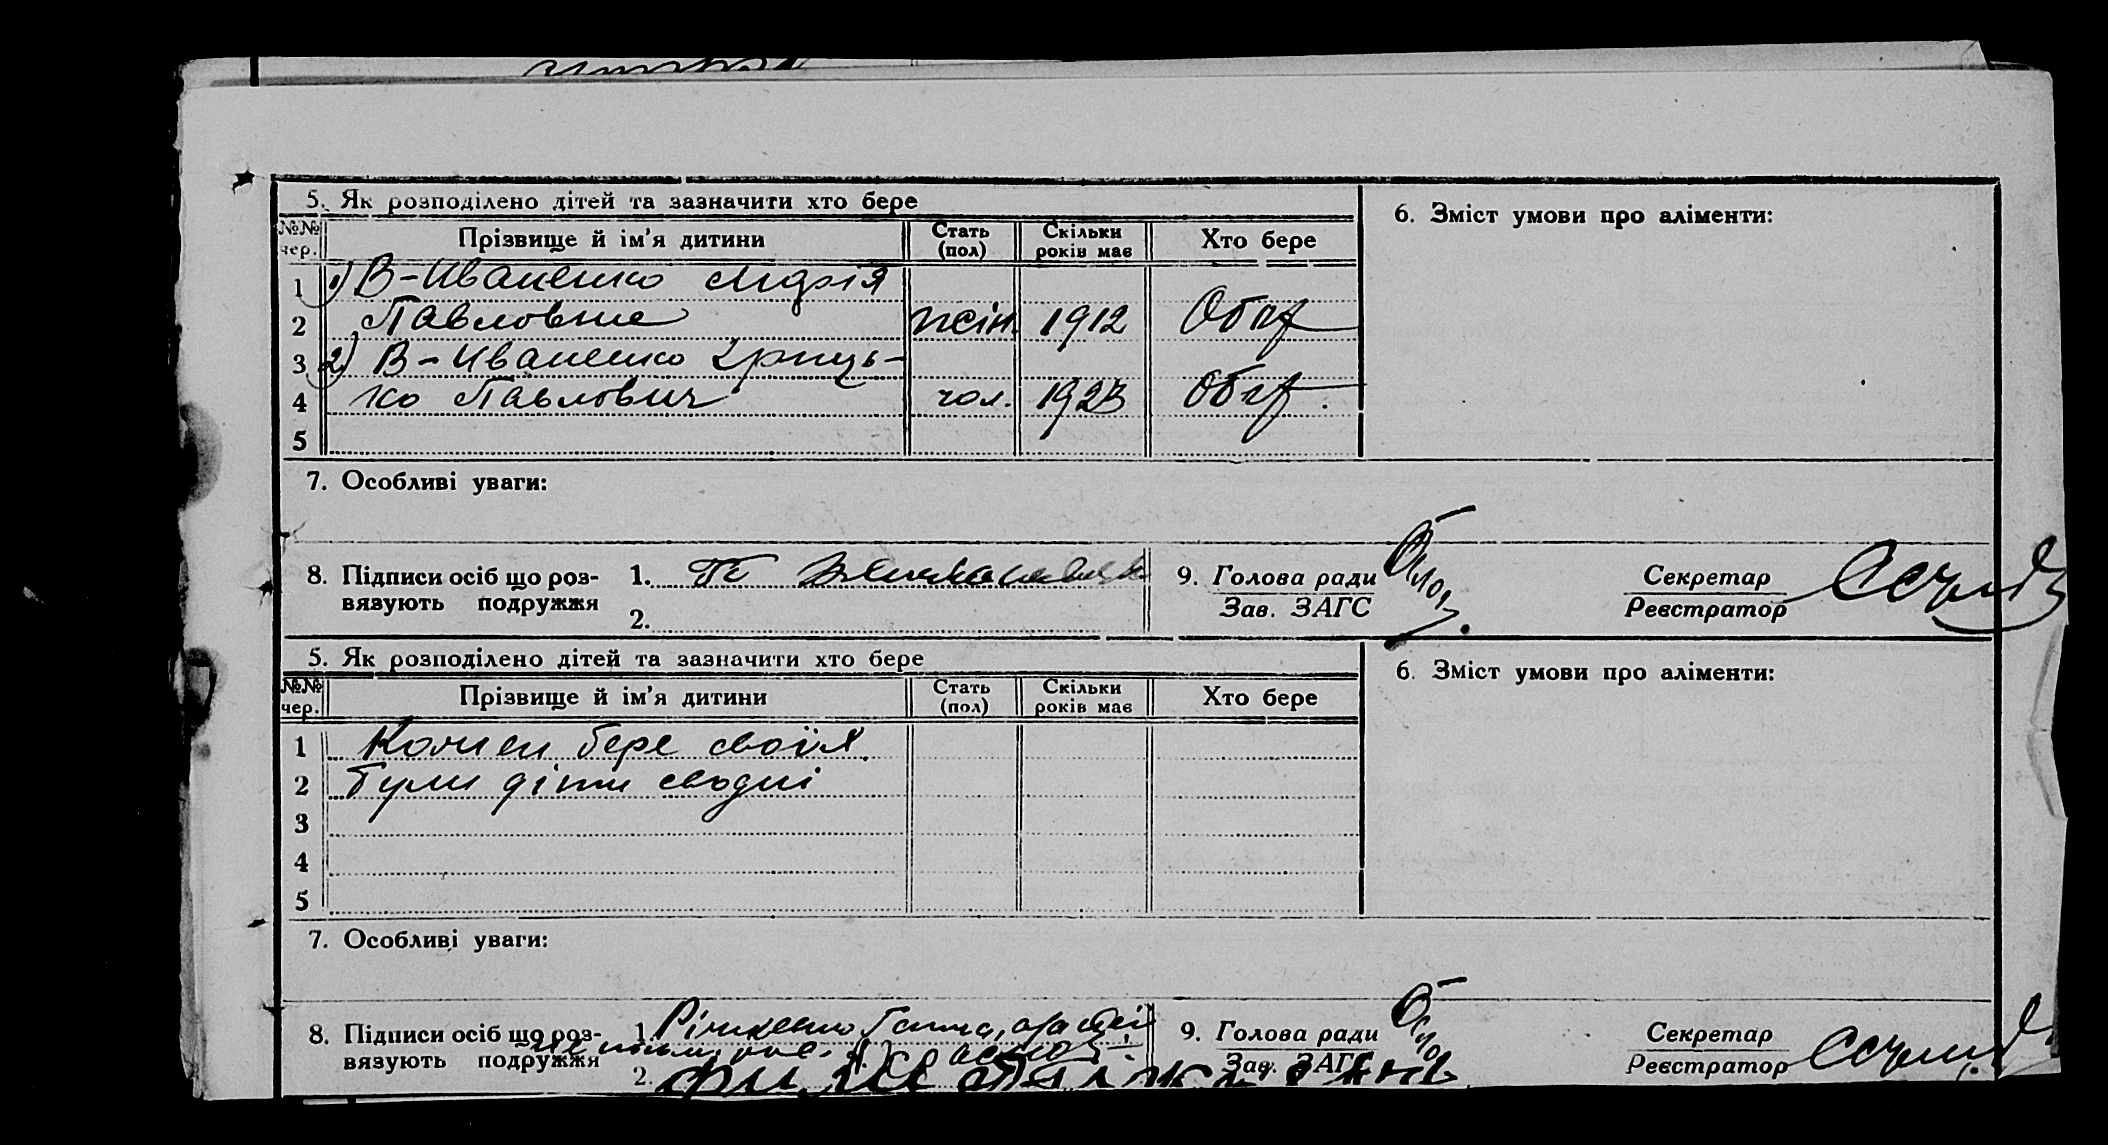 5. Як розподілено дітей та зазначити хто бере
6. Зміст умови про аліменти:
№№ чер. Прізвище й ім'я дитини Стать (пол) Скільки років має Хто бере
1 1) В-Иваненко Лідія
2 Павловне жін. 1912
3 2) В-Иваненко Гриць-
4 ко Павлович чол. 1923
5
7. Особливі уваги:
8. Підписи осіб що роз-вязують подружжя 1.
2.
9. Голова ради
Зав. ЗАГС
Секретар
Реєстратор
5. Як розподілено дітей та зазначити хто бере
6. Зміст умови про аліменти:
№№ чер. Прізвище й ім'я дитини Стать (пол) Скільки років має Хто бере
1 Кожен бере своїх
2 були діти сводні
3
4
5
7. Особливі уваги:
8. Підписи осіб що роз-вязують подружжя 1. Ганна,
2.
9. Голова ради
Зав. ЗАГС
Секретар
Реєстратор